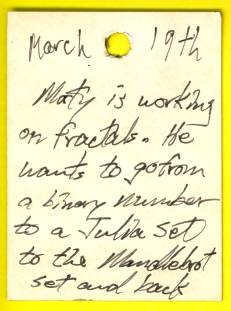 March 19th
Maty is working
on fractals. He
wants to go from
a binary number
to a Julia Set
to the Mandlebrot
set and back